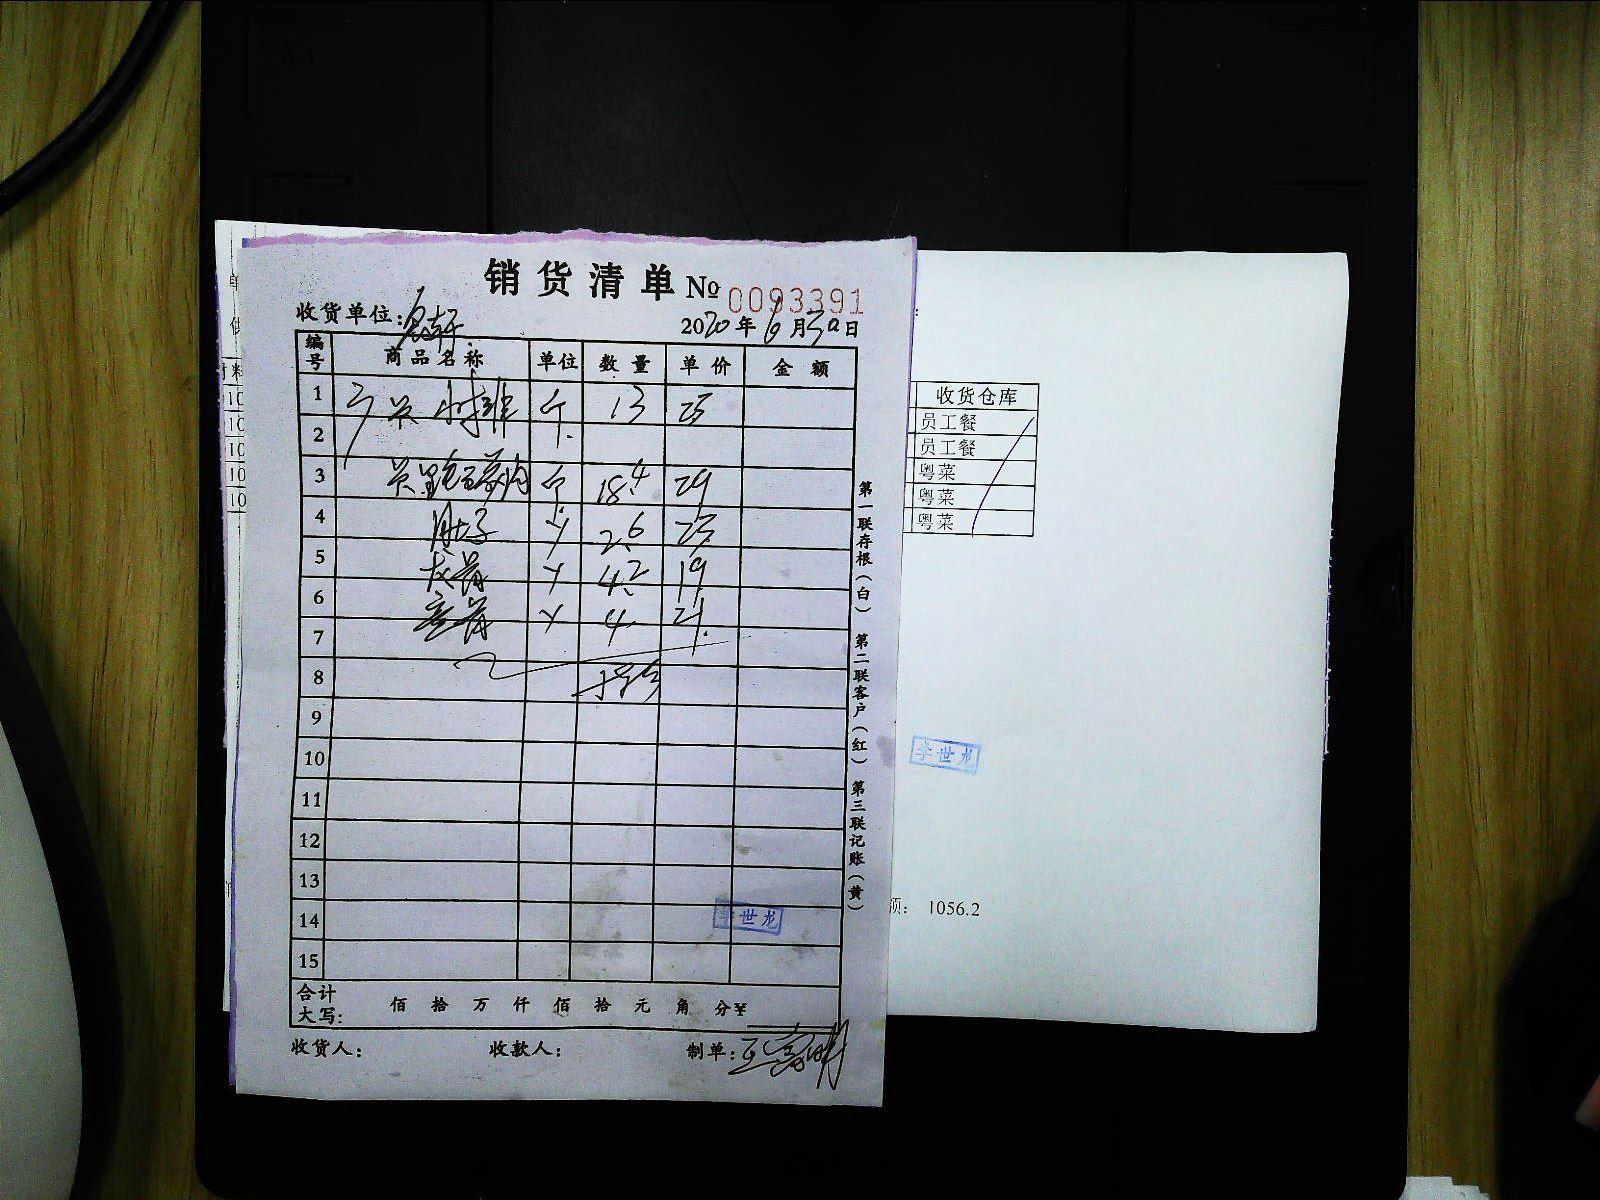 销货清单 № 0093391
收货单位:
2020年6月30日
编号 商品名称 单位 数量 单价 金额
1 13 25
2
3 18.4 29
4 肚子 2.6 25
5 4.2 19
6 4. 21.
7
8
9
10
11
12
13
14
15
李世龙
合计大写: 佰 拾 万 仟 佰 拾 元 角 分 ¥
收货人: 收款人: 制单:
第一联存根(白) 第二联客户(红) 第三联记账(黄)
单
料
10
10
10
10
10
收货仓库
员工餐
员工餐
粤菜
粤菜
粤菜
李世龙
额: 1056.2